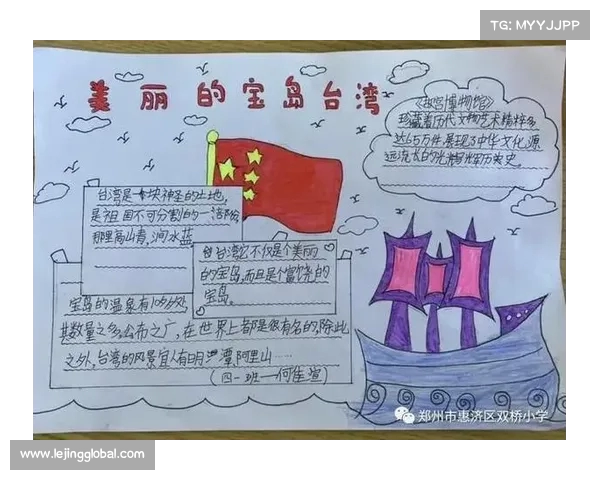 TG: MYYJJPP
美丽的宝岛台湾
《故宫博物馆》
珍藏着历代文物艺术精粹多
达65万件展现了中华文化源
远流长的光辉历史。
台湾是一块神圣的土地,
是祖国不可分割的一部份
那里高山青,涧水蓝
台湾它不仅是个美丽
的宝岛,而且是个富饶的
宝岛。
宝岛的温泉有100多处,
其数量之多,分布之广,在世界上都是很有名的,除此
之外,台湾的风景宜人有日月潭,阿里山……
(四一班——何佳
郑州市惠济区双桥小学
www.lejingglobal.com